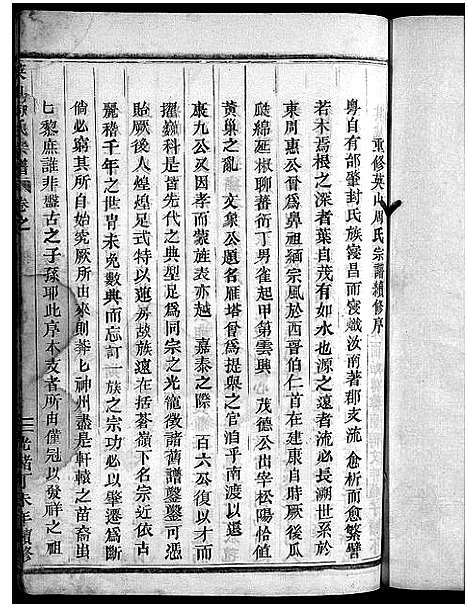 重修英山周氏宗譜續修序
粵自有邰肇封氏族寖昌而寖熾汝南著郡支流愈析而愈繁譬
若木焉根之深者葉自茂有如水也源之遠者流必長溯世系於
東周惠公昝爲鼻祖緬宗風於西晋伯仁首在建康自時厥後瓜
瓞綿延椒聊蕃衍丁男雀起甲第雲興 茂德公出宰松陽恰值
黃巢之亂 文粲公題名雁塔曾爲提舉之官洎乎南渡以還
康九公又因孝而蒙旌表亦越 嘉泰之際 百六公復以才而
擢巍科是皆先代之典型足爲同宗之光寵徵諸舊譜鑿鑿可憑
貽厥後人煌煌是式特以蓮房故族遠在括蒼嶺下名宗近依古
麗稽千年之世冑未免數典而忘訂一族之宗功必以肇遷爲斷
倘必窮其所自始究厥所由來則莽莽神州盡是軒轅之苗裔出
匕黎庶誰非盤古之子孫耶此序本支者所由僅冠以發祥之祖
氏宗譜 卷之
光緒丁未年續修